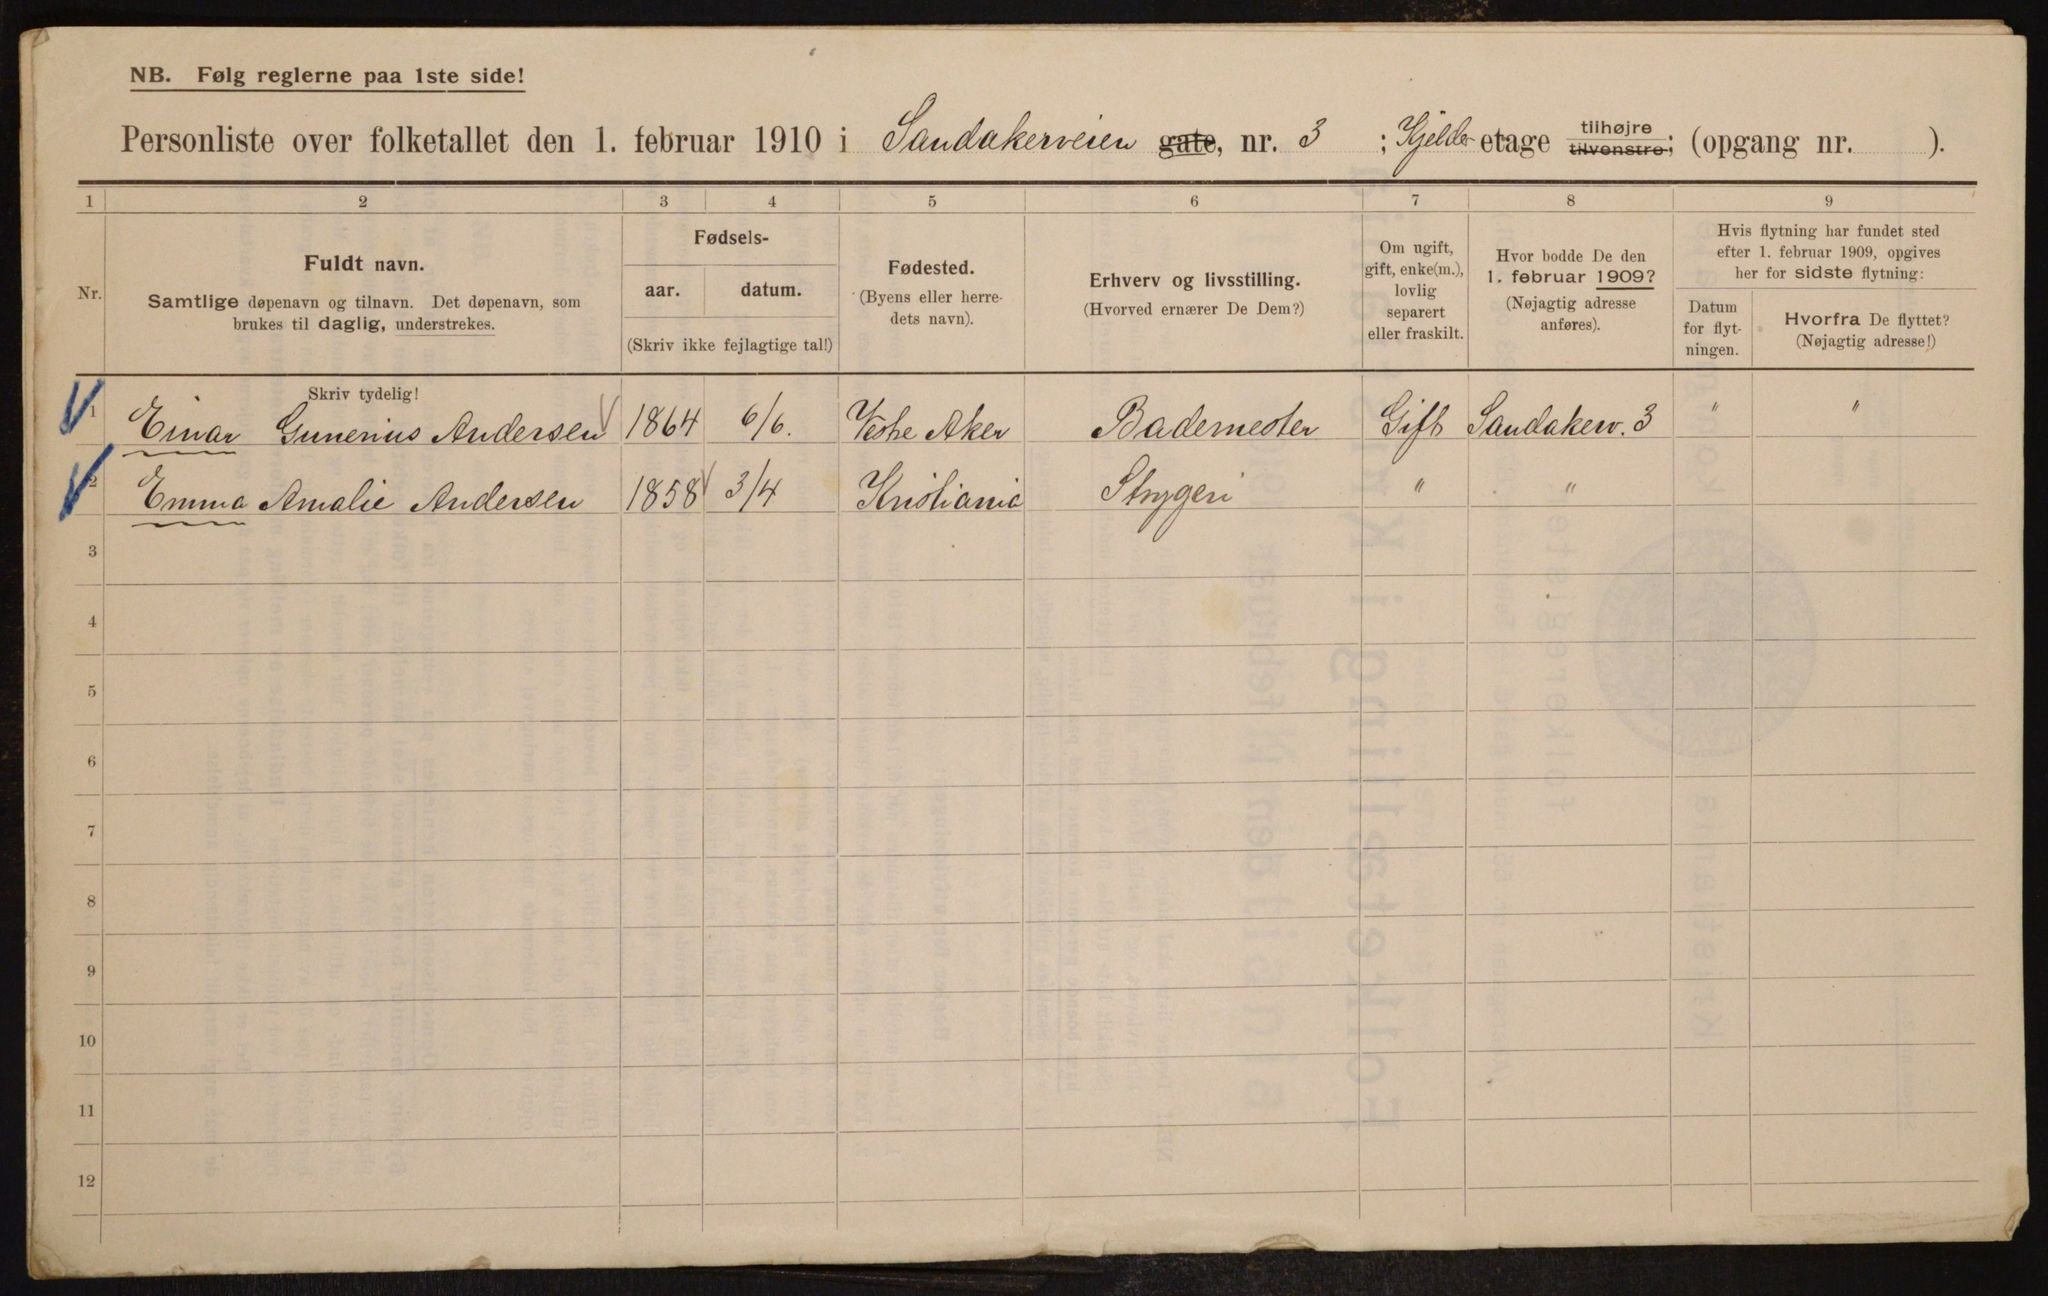 NB. Følg reglerne paa 1ste side!
Personliste over folketallet den 1. februar 1910 i Sandakerveien gate, nr. 3 ; Kjelder etage tilhøjre tilvenstre; (opgang nr. ).
1 2 3 4 5 6 7 8 9
Nr.
Fuldt navn.
Samtlige døpenavn og tilnavn. Det døpenavn, som
brukes til daglig, understrekes.
Fødsels-
aar. datum.
(Skriv ikke fejlagtige tal!)
Fødested.
(Byens eller herre-
dets navn).
Erhverv og livsstilling.
(Hvorved ernærer De Dem?)
Om ugift,
gift, enke(m.),
lovlig
separert
eller fraskilt.
Hvor bodde De den
1. februar 1909?
(Nøjagtig adresse
anføres).
Hvis flytning har fundet sted
efter 1. februar 1909, opgives
her for sidste flytning:
Datum
for flyt-
ningen.
Hvorfra De flyttet?
(Nøjagtig adresse!)
Skriv tydelig!
1 Einar Gunerius Andersen 1864 6/6. Vestre Aker Bademester Gift Sandakerv. 3 " "
2 Emma Amalie Andersen 1858 3/4 Kristiania Strygeri " "
3
4
5
6
7
8
9
10
11
12